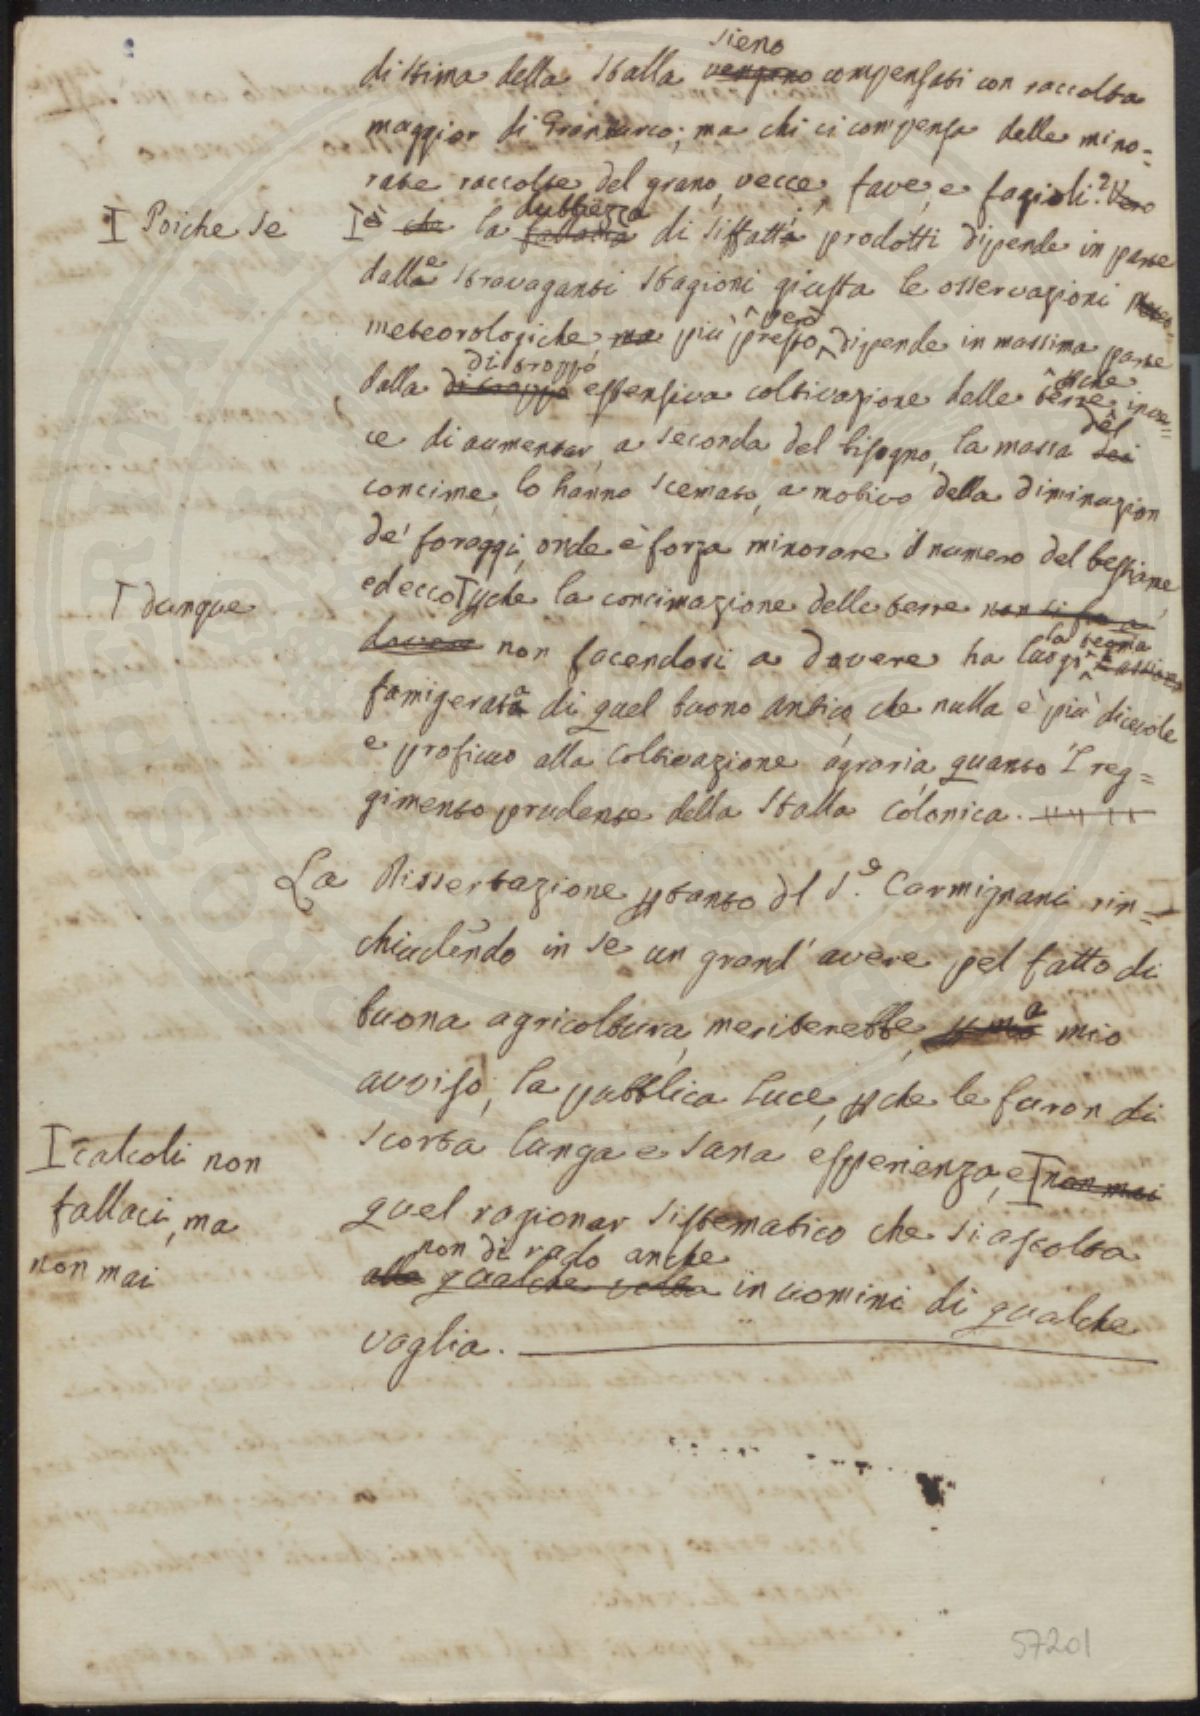 sieno
di stima della Stalla vengano compensati con raccolta
maggior di Granturco; ma chi ci compensa delle mino=
rate raccolte del grano, vecce, fave, e fagioli? Vero
I Poiche se
dubbiezza
I è che la fallacia di siffatti prodotti dipende in parte
dalle stravaganti stagioni giusta le osservazioni
però
meteorologiche ma più presto dipende in massima parte
di troppo
che
dalla di troppo estensiva coltivazione delle terre, inve=
del
ce di aumentar, a seconda del bisogno, la massa dei
concime, lo hanno scemato, a motivo della diminuzion
de' foraggi, onde è forza minorare il numero del bestiame,
I dunque
ed ecco I pche la concimazione delle terre non si fa a
la
dovere non facendosi a dovere ha luogo
famigerata di quel buono antico, che nulla è più dicevole
e proficuo alla Coltivazione agraria, quanto 'l reg=
gimento prudente della Stalla Colonica.
La Dissertazione ptanto dl S.e Carmignani rin=
chiudendo in se un grand' avere pel fatto di
a
buona agricoltura, meriterebbe, mio
avviso, la pubblica luce, pche le furon di
scorta lunga e sana esperienza, e I non mai
I calcoli non
fallaci, ma
non mai
quel ragionar sistematico che si ascolta
non di rado anche
alle qualche volta in uomini di qualche
vaglia.
57201